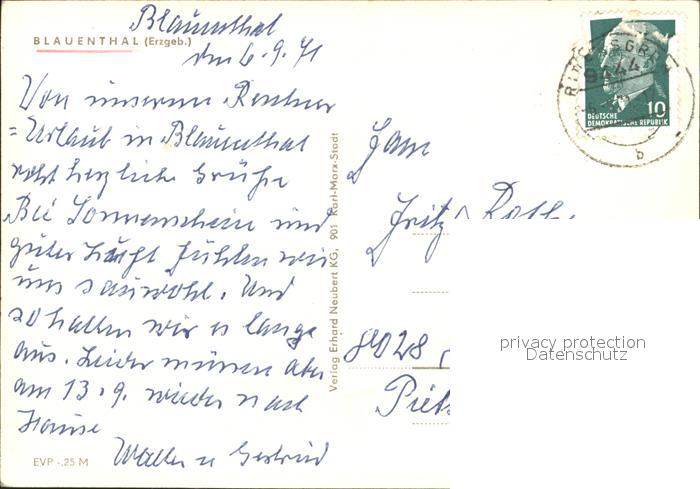 Blauenthal
BLAUENTHAL (Erzgeb.)
den 6.9.71
Von unserem Rentner
=Urlaub in Blauenthal
recht herzliche Grüße
Bei Sonnenschein und
guter Luft fühlen wir
uns sauwohl. Und
so halten wir es lange
aus. Leider müssen aber
am 13.9. wieder nach
Hause
Walter u Gertrud
EVP -.25 M
Verlag Erhard Neubert KG, 901 Karl-Marx-Stadt
Fam
Fritz
8028
10
DEUTSCHE
DEMOKRATISCHE REPUBLIK
b
privacy protection
Datenschutz